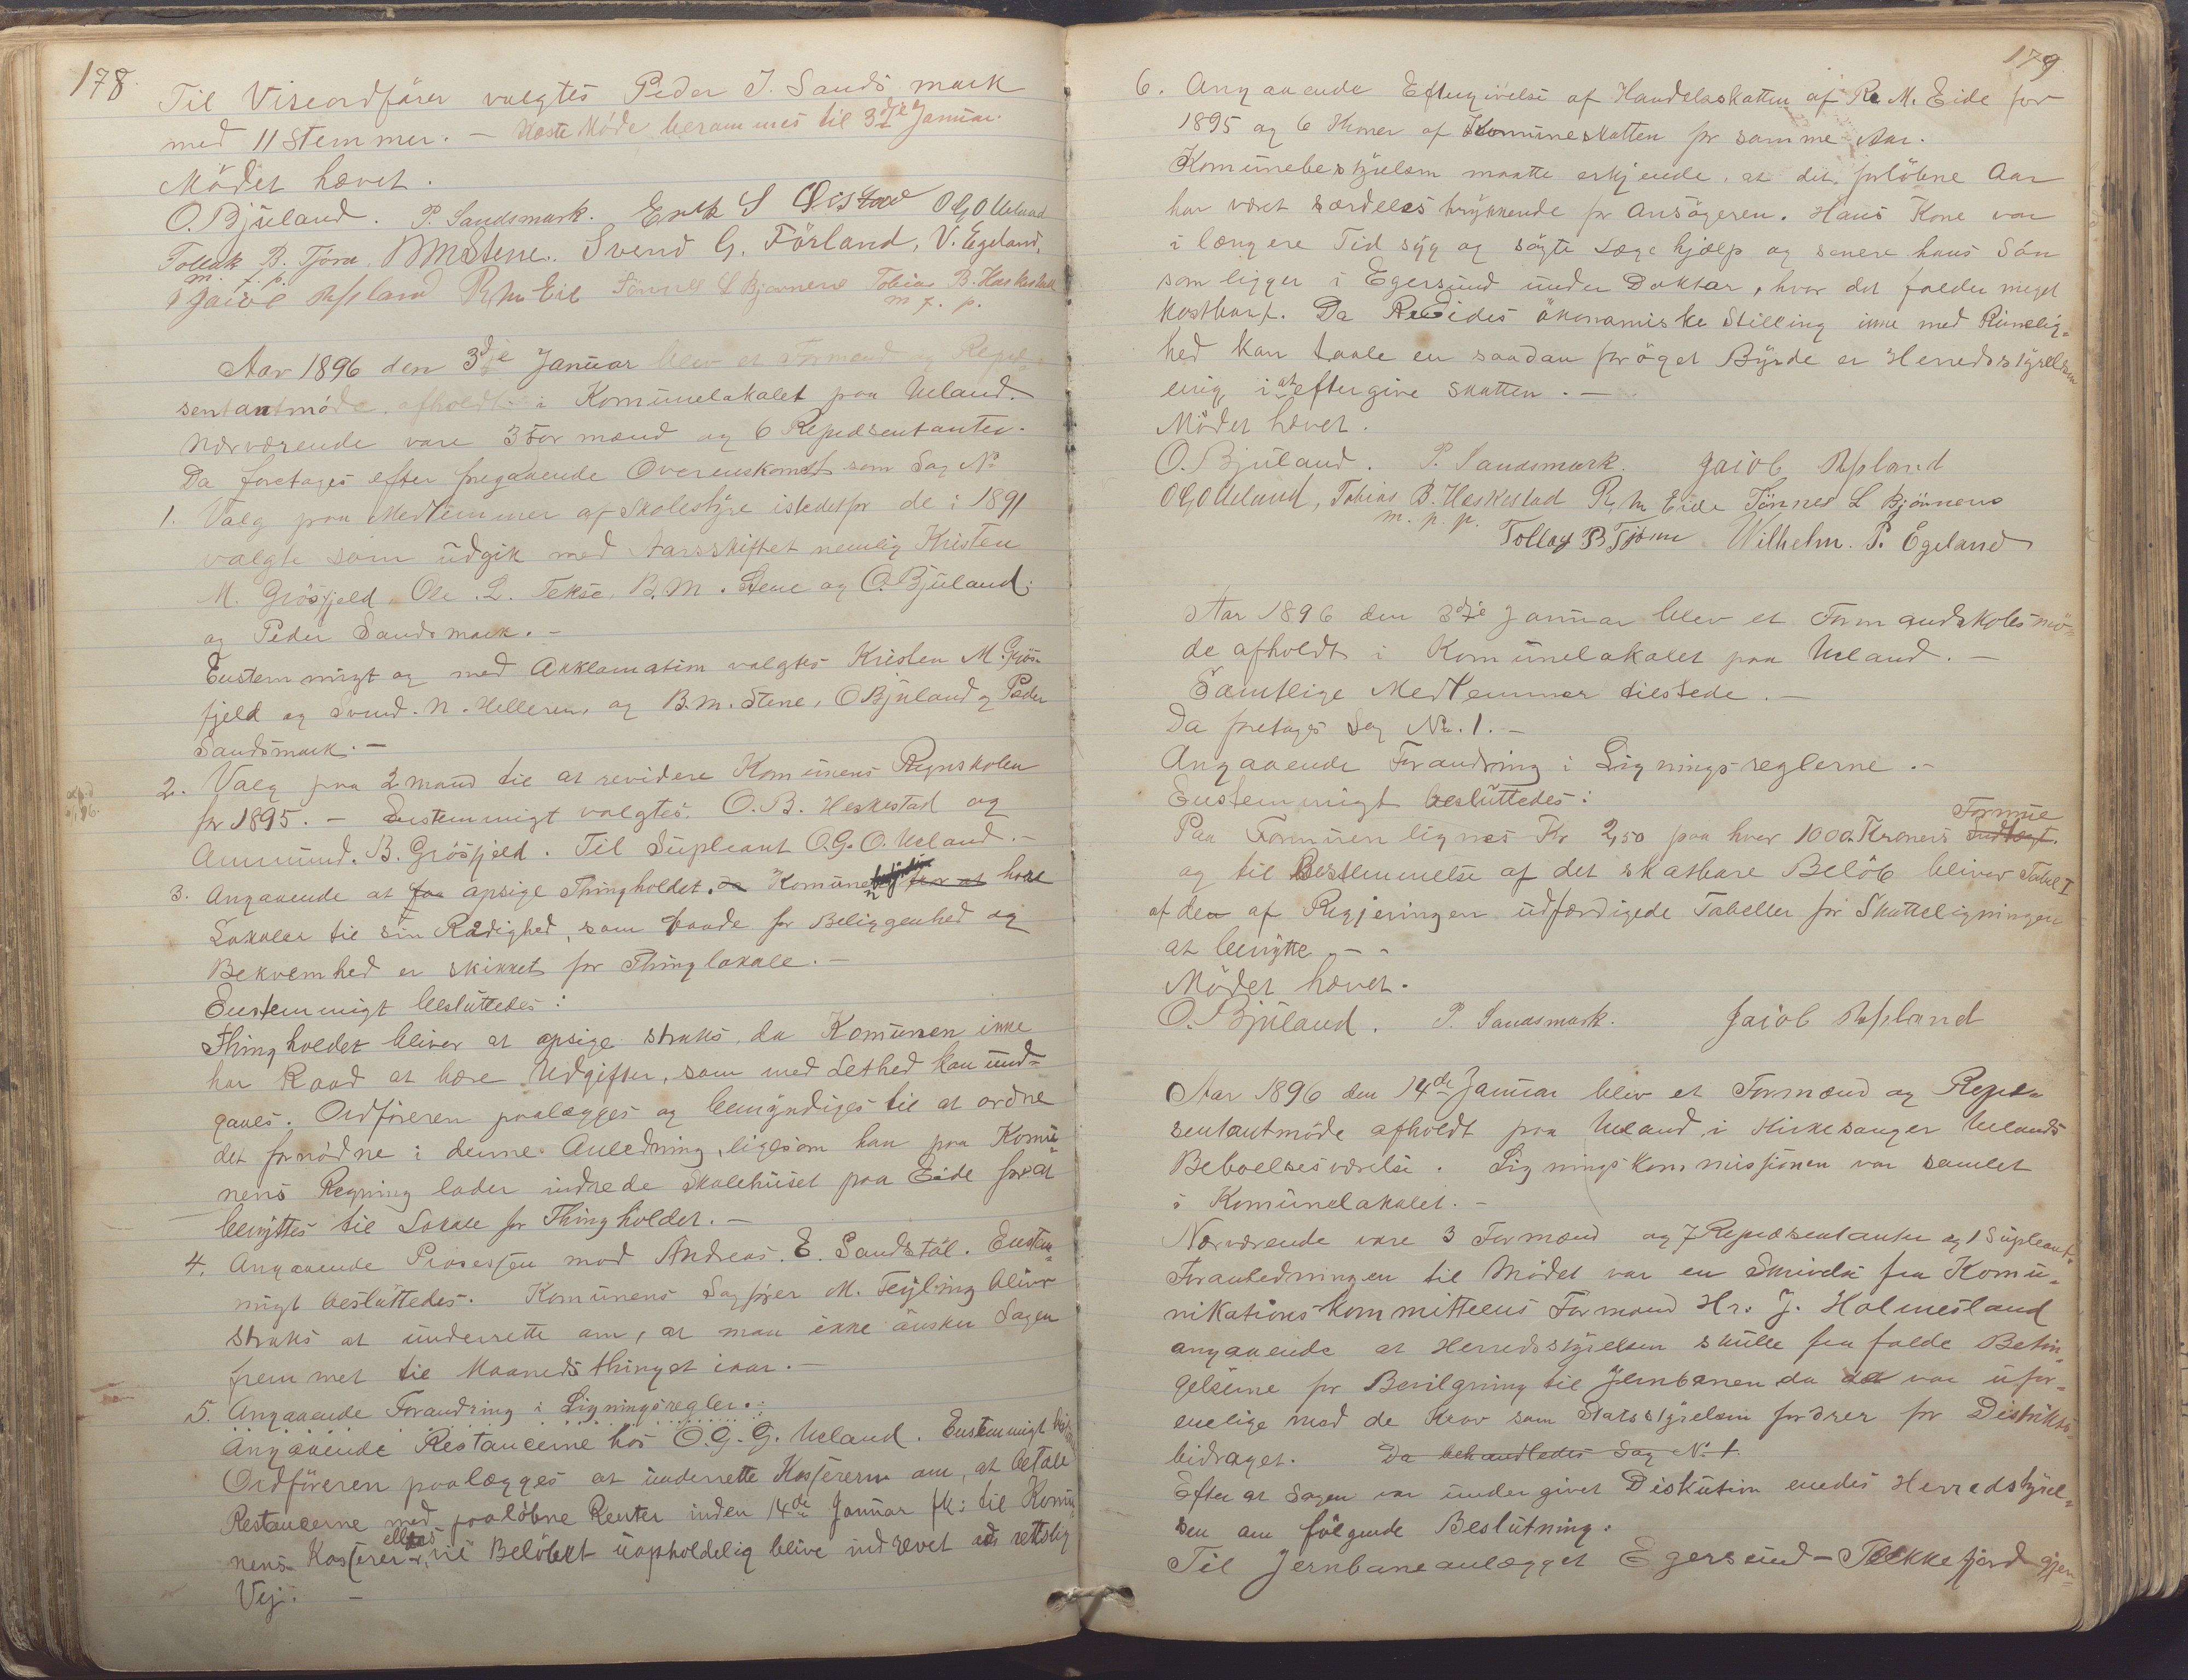 178.
Til Viseordförer valgtes Peder J. Sandsmark
med 11 Stemmer. — Næste Möde berammes til 3dje Januar.
Mödet hævet.
O. Bjuland. P. Sandsmark. Erik S O G O Ueland
Tollak B. Tjörn. B M Stene. Svend G. Förland, V. Egeland,
m. f. p.
Jacob Refsland R. M. Eide Tönnes L Bjönnene Tobias B. Heskestad
m. f. p.
Aar 1896 den 3dje Januar blev et Formænd og Repræ-
sentantmöde afholdt i Komunelokalet paa Ueland.
Nærværende vare 3 Formænd og 6 Repræsentanter.
Da foretages efter foregaaende Overenskomst som Sag No
1. Valg paa Medlemmer af Skolestyre istedetfor de i 1891
valgte som udgik med Aarsskiftet nemlig Kristen
M. Grösfjeld, Ole L. Tekse, B. M. Stene og O. Bjuland;
og Peder Sandsmark. —
Enstemmigt og med Akklamation valgtes Kristen M. Grös-
fjeld og Svend N. Helleren, og B. M. Stene, O Bjuland og Peder
Sandsmark. —
2. Valg paa 2 mand til at revidere Komunens Regnskaber
for 1895. — Enstemmigt valgtes O. B. Heskestad og
Ammund B. Grösfjeld. Til Supleant O. G. O. Ueland. —
3. Angaaende at faa opsige Thingholdet, da Komunen for at have
Lokaler til sin Raadighed, som baade for Beliggenhed og
Bekvemhed er skikket for Thinglokale. —
Enstemmigt besluttedes:
Thingholdet bliver at opsige straks, da Komunen ikke
har Raad at bære Udgifter, som med Lethed kan und-
gaaes. Ordföreren paalægges og bemyndiges til at ordne
det fornödne i denne Anledning, ligesom han paa Komu-
nens Regning lader indrede Skolehuset paa Eide for at
benyttes til Lokale for Thingholdet. —
4. Angaaende Prosessen mod Andreas E. Sandstöl. Enstem-
migt besluttedes. Komunens Sagförer M. Feyling bliver
straks at underrette om, at man ikke önsker Sagen
fremmet til Maanedsthinget ivaar. —
5. Angaaende Forandring i Ligningsregler.
Angaaende Restancerne hos O. G. G. Ueland. Enstemmigt
Ordföreren paalægges at underrette Kassereren om, at betale
Restancerne med paalöbne Renter inden 14de Januar fk: til Komu-
nens Kasserer, ellers vil Belöbet uopholdelig blive indrevet ad rettslig
Vej. —
179.
6. Angaaende Eftergivelse af Handelsskatten af R. M. Eide for
1895 og 6 Kroner af Komuneskatten for samme Aar.
Komunebestyrelsen maatte erkjende, at det forlöbne Aar
har været særdeles trykkende for Ansögeren. Hans Kone var
i længere Tid syg og sögte Lægehjælp og senere hans Sön
som ligger i Egersund under Doktor, hvor det falder meget
kostbart. Da R Eides ökonomiske Stilling ikke med Rimelig-
hed kan taale en saadan foröget Byrde er Herredsstyrelsen
enig i at eftergive Skatten. —
Mödet hævet.
O. Bjuland. P. Sandsmark. Jacob Refsland
O G O Ueland, Tobias B. Heskestad R. M. Eide Tönnes L Bjönnene
m. f. p.
Tollag B Tjörn Wilhelm. P. Egeland
Aar 1896 den 3dje Januar blev et Formandskabsmö-
de afholdt i Komunelokalet paa Ueland. —
Samtlige Medlemmer tilstede. —
Da foretages Sag No. 1. —
Angaaende Forandring i Ligningsreglerne. —
Enstemmigt besluttedes:
Paa Formuen lignes Kr 2,50 paa hver 1000 Kroners Indtægt. Formue
og til Bestemmelse af det skatbare Belöb bliver Tabel I
af den af Regjeringen udfærdigede Tabeller for Skatteligningen
at benytte. — -
Mödet hævet.
O. Bjuland. P. Sandsmark. Jacob Refsland
Aar 1896 den 14de Januar blev et Formænd og Repræ-
sentantmöde afholdt paa Ueland i Kirkesanger Uelands
Beboelsesværelse. Ligningskommissionen var samlet
i Komunelokalet. —
Nærværende vare 3 Formænd og 7 Repræsentanter og 1 Supleant.
Foranledningen til Mödet var en Skrivelse fra Komu-
nikationskommitteens Formand Hr. J. Holmesland
angaaende at Herredsstyrelsen skulle frafalde Betin-
gelserne for Bevilgning til Jernbanen da de var ufor-
enelige med de Krav som Statsstyrelsen fordrer for Distrikts-
bidraget. Da behandledes Sag No 1.
Efter at Sagen var undergivet Diskution enedes Herredstyrel-
sen om fölgende Beslutning:
Til Jernbaneanlægget Egersund - Flekkefjord gjen-